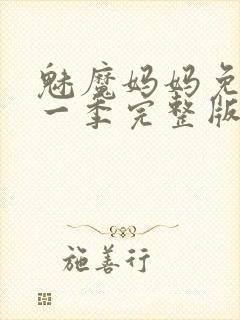 魅魔妈妈免
一季完整版
施善行